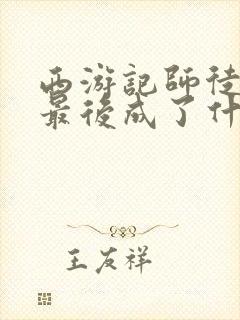 西游記師徒
最後成了什
王友祥